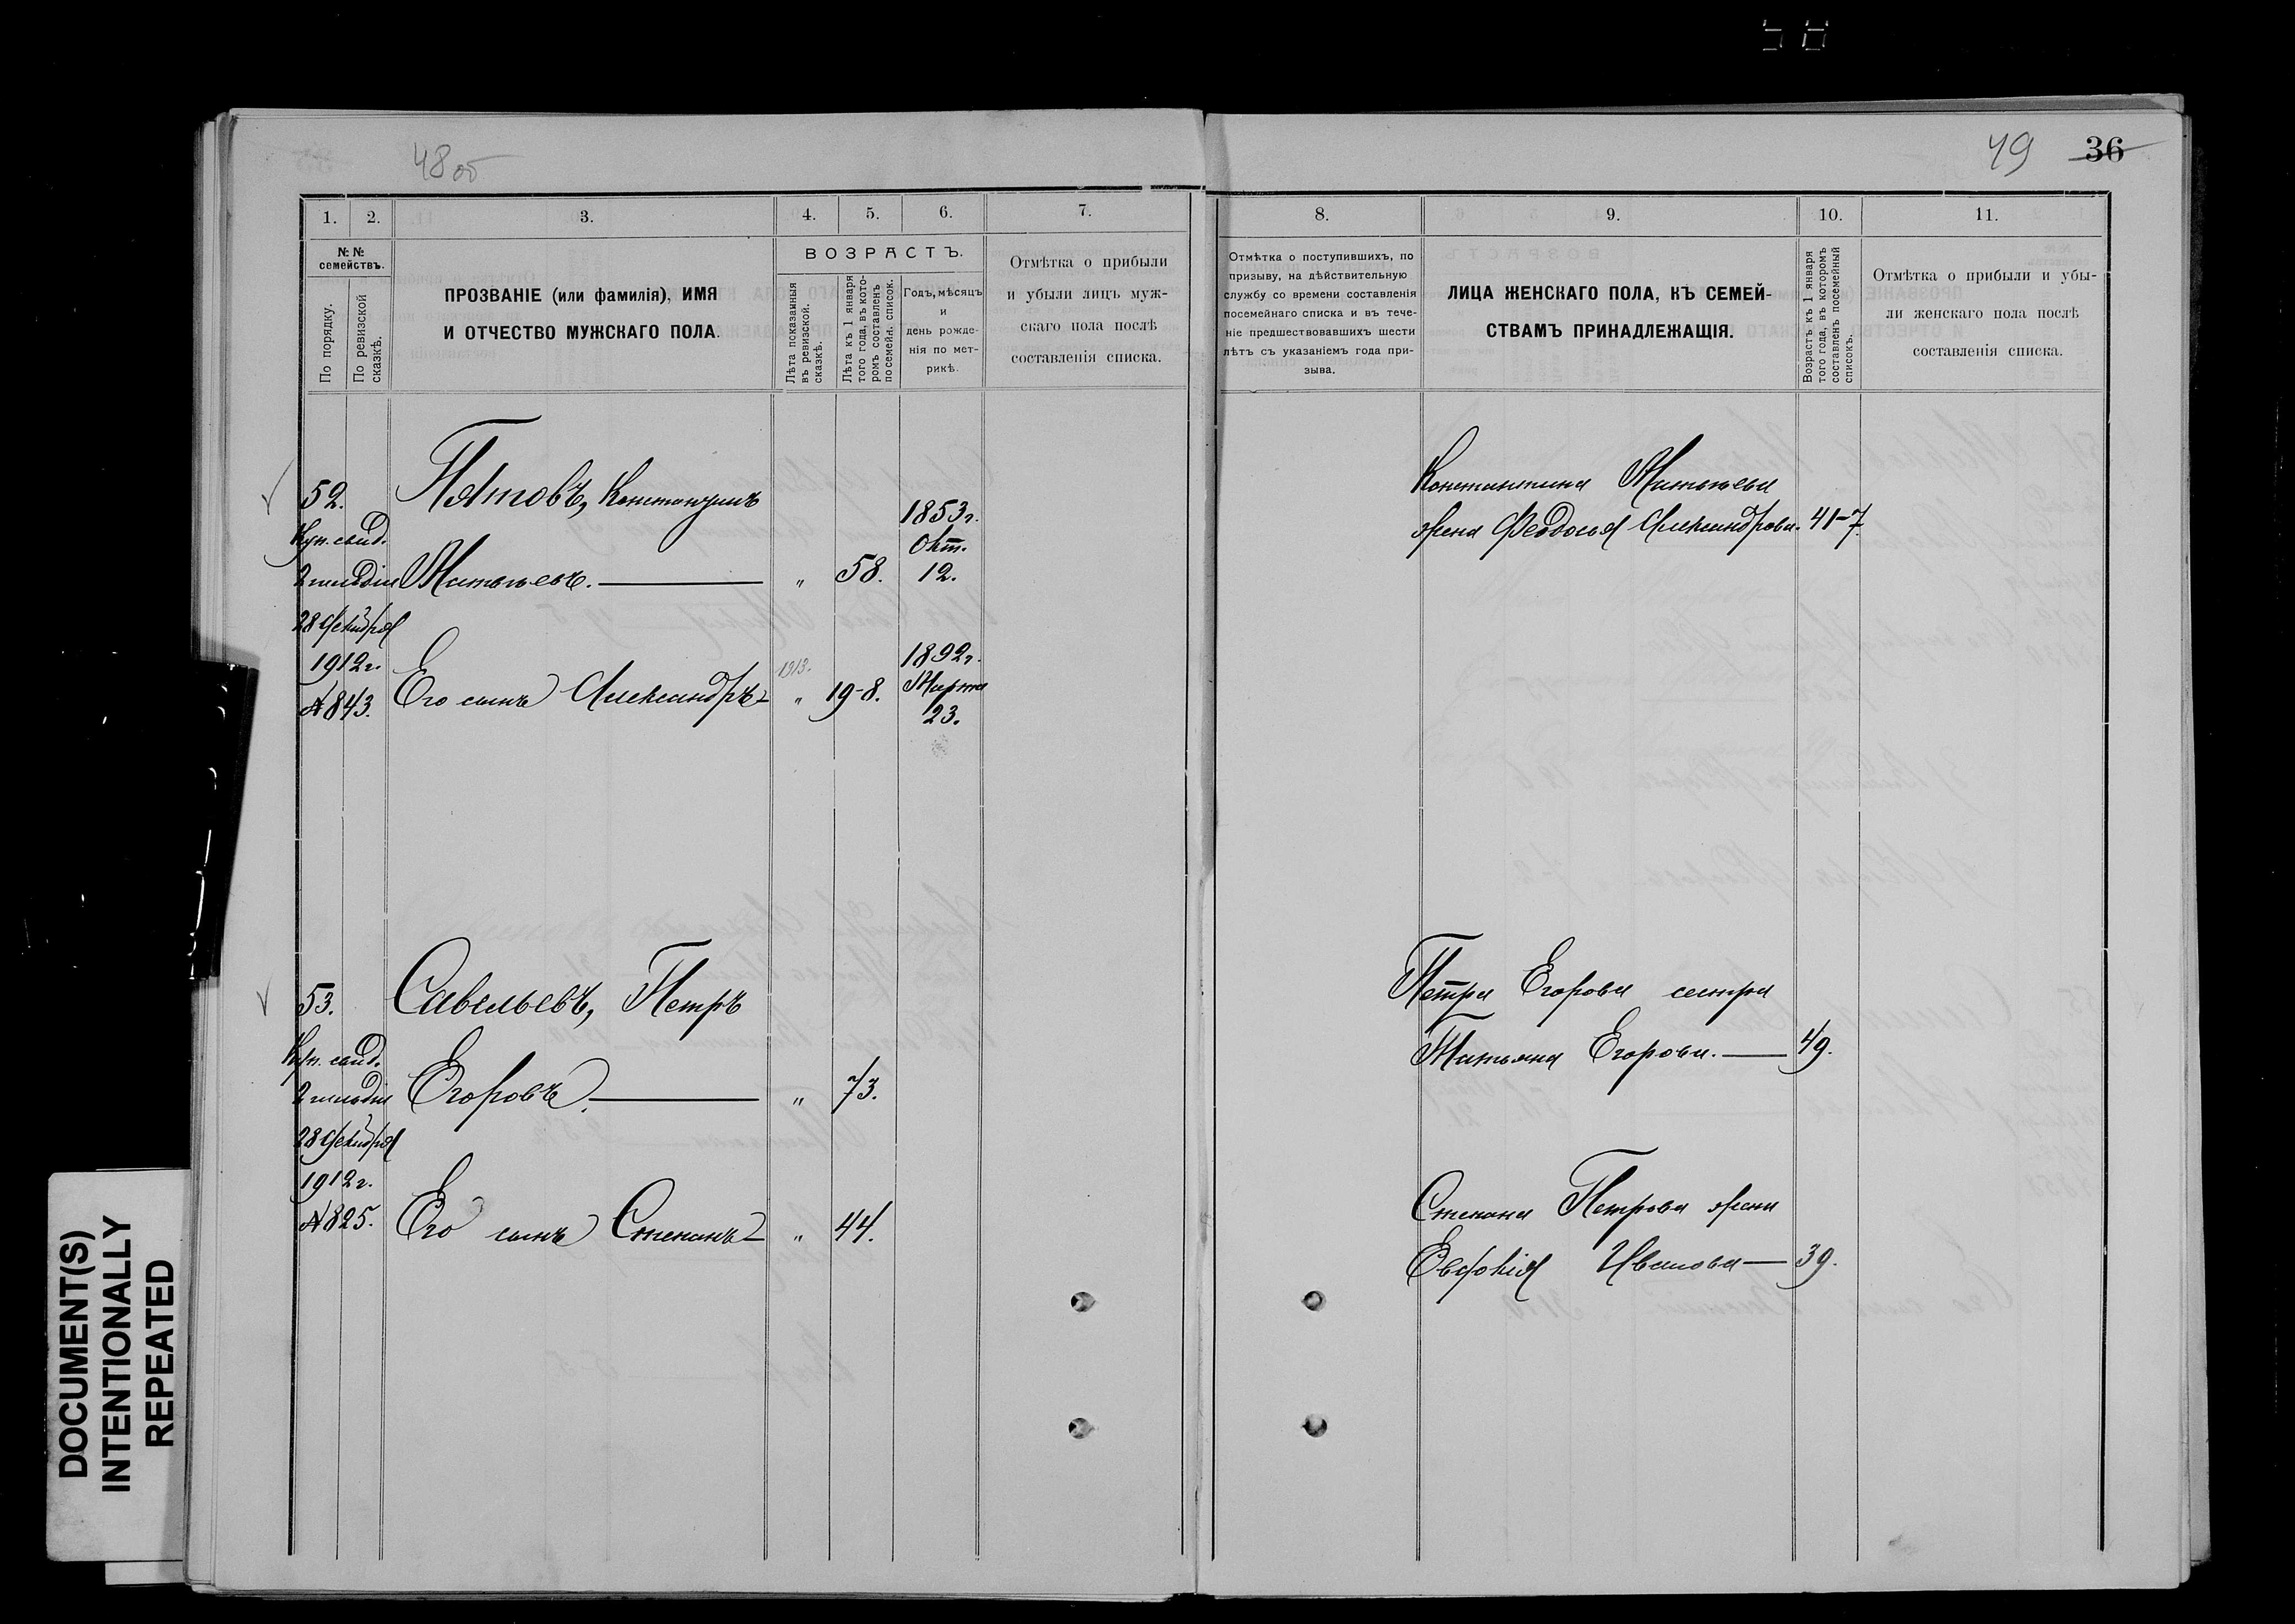 48 об
49 36
1. 2. 3. 4. 5. 6. 7.
№ №
семействъ.
По порядку.
По ревизской
сказкѣ.
ПРОЗВАНІЕ (или фамилія), ИМЯ
И ОТЧЕСТВО МУЖСКАГО ПОЛА.
ВОЗРАСТЪ.
Лѣта показанныя
въ ревизской.
сказкѣ.
Лѣта къ 1 января
того года, въ кото-
ромъ составленъ
посемейн. список.
Годъ, мѣсяцъ
и
день рожде-
нія по мет-
рикѣ.
Отмѣтка о прибыли
и убыли лицъ муж-
скаго пола послѣ
составленія списка.
52.
Куп. свид.
2 гильдіи
28 Декабря
1912 г.
№ 843.
Пятовъ, Константинъ
Матвѣевъ. " 58.
1853 г.
Окт.
12.
1913.
Его сынъ Александръ " 19-8.
1892 г.
Марта
23.
53.
Куп. свид.
2 гильдіи
28 Декабря
1912 г.
№ 825.
Савельевъ, Петръ
Егоровъ. " 73.
Его сынъ Степанъ " 44.
8. 9. 10. 11.
Отмѣтка о поступившихъ, по
призыву, на дѣйствительную
службу со времени составленія
посемейнаго списка и въ тече-
ніе предшествовавшихъ шести
лѣтъ съ указаніемъ года при-
зыва.
ЛИЦА ЖЕНСКАГО ПОЛА, КЪ СЕМЕЙ-
СТВАМЪ ПРИНАДЛЕЖАЩІЯ.
Возрастъ къ 1 января
того года, въ которомъ
составленъ посемейный
списокъ.
Отмѣтка о прибыли и убы-
ли женскаго пола послѣ
составленія списка.
Константина Матвѣева
жена Феодосья Александрова. 41-7.
Петра Егорова сестра
Татьяна Егорова. 49.
Степана Петрова жена
Евдокія Иванова 39.
DOCUMENT(S)
INTENTIONALLY
REPEATED